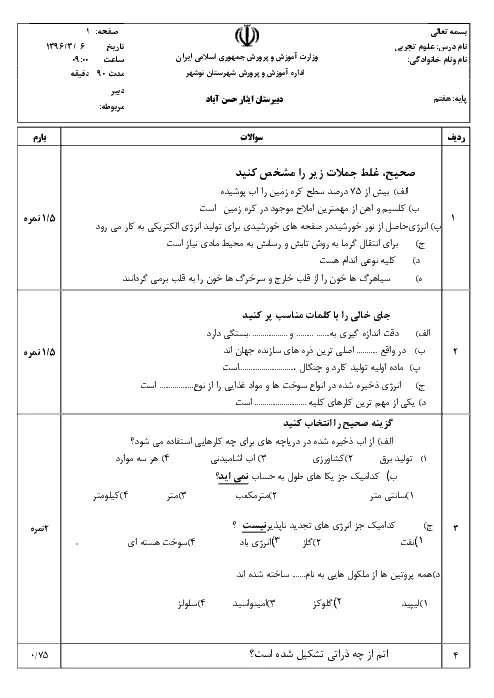 بسمه تعالی
نام درس: علوم تجربی
نام ونام خانوادگی:
پایه: هفتم
وزارت آموزش و پرورش جمهوری اسلامی ایران
اداره آموزش و پرورش شهرستان نوشهر
دبیرستان ایثار حسن آباد
صفحه: ۱
تاریخ ۶ /۳/ ۱۳۹۶
ساعت ۰۹:۰۰
مدت ۹۰ دقیقه
دبیر
مربوطه:
ردیف سوالات بارم
صحیح، غلط جملات زیر را مشخص کنید
الف) بیش از ۷۵ درصد سطح کره زمین را اب پوشیده
ب) کلسیم و اهن از مهمترین املاح موجود در کره زمین است
پ) انرژی حاصل از نور خورشیددر صفحه های خورشیدی برای تولید انرژی الکتریکی به کار می رود
ج) برای انتقال گرما به روش تابش و رسانش به محیط مادی نیاز است
د) کلیه نوعی اندام هست
ه) سیاهرگ ها خون را از قلب خارج و سرخرگ ها خون را به قلب برمی گردانند
۱
۱/۵ نمره
جای خالی را با کلمات مناسب پر کنید
الف) دقت اندازه گیری به............ و ................بستگی دارد
ب) در واقع .......... اصلی ترین ذره های سازنده جهان اند
پ) ماده اولیه تولید کارد و چنگال .........................است
ج) انرژی ذخیره شده در انواع سوخت ها و مواد غذایی را از نوع............... است
د) یکی از مهم ترین کارهای کلیه ...................... است
۲
۱/۵ نمره
گزینه صحیح را انتخاب کنید
الف) از اب ذخیره شده در دریاچه های برای چه کارهایی استفاده می شود؟
۱) تولید برق ۲)کشاورزی ۳) اب اشامیدنی ۴) هر سه موارد
ب) کدامیک جز یکا های طول به حساب نمی اید؟
۱)سانتی متر ۲)مترمکعب ۳)متر ۴)کیلومتر
ج) کدامیک جز انرژی های تجدید ناپذیر نیست ؟
۱)نفت ۲)گاز ۳)انرژی باد ۴)سوخت هسته ای
د)همه پروتین ها از ملکول هایی به نام...... ساخته شده اند
۱)لیپید ۲)گلوکز ۳)امینواسید ۴)سلولز
۳
۲نمره
۴ اتم از چه ذراتی تشکیل شده است؟ ۰/۷۵